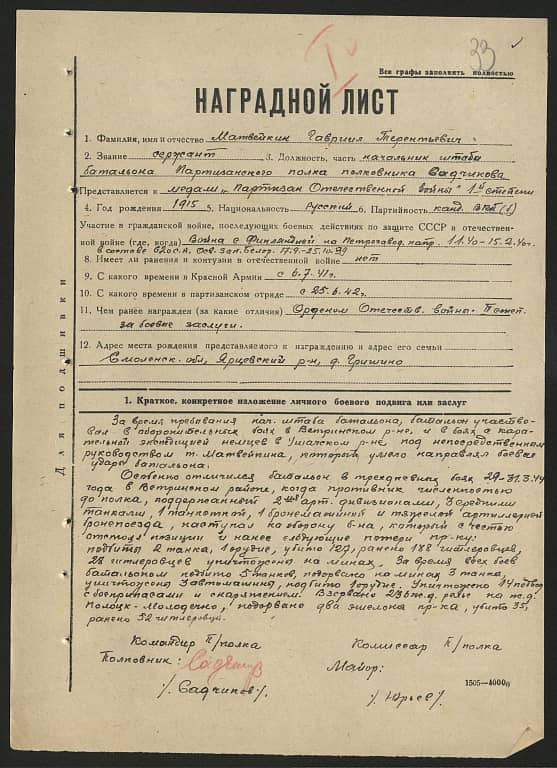 IV
33
Все графы заполнять полностью
НАГРАДНОЙ ЛИСТ
1. Фамилия, имя и отчество Матвейкин Гавриил Терентьевич.
2. Звание сержант 3. Должность, часть начальник штаба
батальона Партизанского полка полковника Садчикова
Представляется к медали „Партизан Отечественной войны" 1й степени
4. Год рождения 1915 5. Национальность Русский 6. Партийность канд. ВКП(б)
Участие в гражданской войне, последующих боевых действиях по защите СССР и отечествен-
ной войне (где, когда) Война с Финляндией на Петрозавод. напр. 1.1.40-15.2.40г.
в составе 62 о с.п. Осв. зап. Белор. 17.9-25.10.39
8. Имеет ли ранения и контузии в отечественной войне нет
9. С какого времени в Красной Армии с 6.7.41г.
10. С какого времени в партизанском отряде с 25.6.42г.
11. Чем ранее награжден (за какие отличия) Орденом Отечеств. война. II степ.
за боевые заслуги.
12. Адрес места рождения представляемого к награждению и адрес его семьи
Смоленск. обл, Ярцевский р-н, д. Гришино
Для подшивки
1. Краткое, конкретное изложение личного боевого подвига или заслуг
За время пребывания нач. штаба батальона, батальон участво-
вал в оборонительных боях в Ветринском р-не, и в боях с кара-
тельной экспедицией немцев в Ушачском р-не под непосредственным
руководством т. Матвейкина, который умело направлял боевые
удары батальона.
Особенно отличился батальон в трехдневных боях 29-31.3.44
года в Ветринском районе, когда противник численностью
до полка, поддержанный 2мя арт. дивизионами, 3 средними
танками, 1 танкеткой, 1 бронемашиной и тяжелой артиллерией
бронепоезда, наступал на оборону б-на, который с честью
отстоял позиции и нанес следующие потери пр-ку:
подбиты 2 танка, 1 орудие, убито 129, ранено 188 гитлеровцев,
28 гитлеровцев уничтожено на минах. За время всех боев
батальоном подбито 5 танков, подорвано на минах 3 танка,
уничтожено 3 автомашины, подбито 1 орудие. Уничтожено 14 подвод
с боеприпасами и снаряжением. Взорвано 236 ж.д. рельс на ж.д.
Полоцк-Молодечно, подорвано два эшелона пр-ка, убито 35,
ранено 52 гитлеровца.
Командир п/полка
Комиссар п/полка
Полковник: Садчиков
Майор:
/Садчиков/.
/Юрьев/.
1505—4000